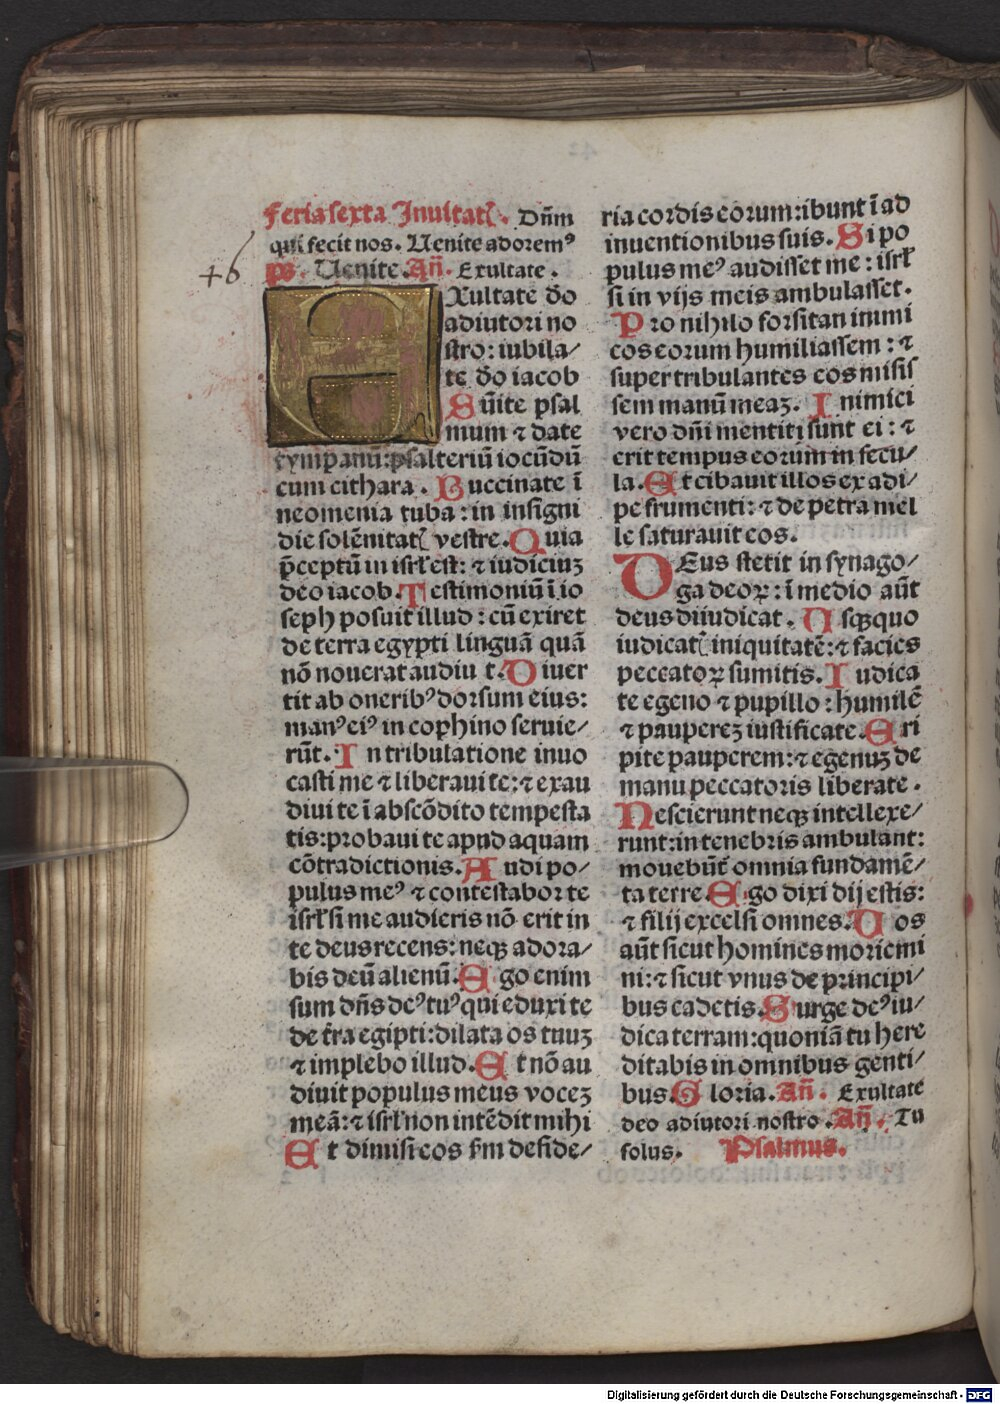 Feria sexta Inuitatꝭ. Dn̄m
qui fecit nos. Uenite adoremꝰ
46
ps. Uenite. An̄. Exultate.
EXultate do
adiutori no
stro: iubila/
te do iacob
Sūite psal
mum ⁊ date
tympanū: psalteriū iocūdū
cum cithara. Buccinate ī
neomenia tuba: in insigni
die solēnitatꝭ vestre. Quia
p̄ceptū in isrl̄ est: ⁊ iudiciuꝫ
deo iacob. Testimoniū ī io
seph posuit illud: cū exiret
de terra egypti linguā quā
nō nouerat audiu t. Diuer
tit ab oneribꝰ dorsum eius:
manꝰ eiꝰ in cophino seruie/
rūt. In tribulatione inuo
casti me ⁊ liberaui te: ⁊ exau
diui te ī abscōdito tempesta
tis: probaui te apud aquam
cōtradictionis. Audi po/
pulus meꝰ ⁊ contestabor te
isrl̄ si me audieris nō erit in
te deus recens: neqꝫ adora/
bis deū alienū. Ego enim
sum dn̄s deꝰ tuꝰ qui eduxi te
de t̄ra egipti: dilata os tuuꝫ
⁊ implebo illud. Et nō au
diuit populus meus voceꝫ
meā: ⁊ isrl̄ non intēdit mihi
Et dimisi eos s̄m deside/
ria cordis eorum: ibunt ī ad
inuentionibus suis. Si po
pulus meꝰ audisset me: isrl̄
si in vijs meis ambulasset.
Pro nihilo forsitan inimi
cos eorum humiliassem: ⁊
super tribulantes eos misis
sem manū meaꝫ. Inimici
vero dn̄i mentiti sunt ei: ⁊
erit tempus eorum in secu/
la. Et cibauit illos ex adi/
pe frumenti: ⁊ de petra mel
le saturauit eos.
DEus stetit in synago/
ga deoꝝ: ī medio aūt
deus diiudicat. Usqꝫquo
iudicatꝭ iniquitatē: ⁊ facies
peccatoꝝ sumitis. Iudica
te egeno ⁊ pupillo: humilē
⁊ paupereꝫ iustificate. Eri
pite pauperem: ⁊ egenuꝫ de
manu peccatoris liberate.
Nescierunt neqꝫ intellexe/
runt: in tenebris ambulant:
mouebūt omnia fundamē/
ta terre. Ego dixi dij estis:
⁊ filij excelsi omnes. Uos
aūt sicut homines moriemi
ni: ⁊ sicut vnus de principi/
bus cadetis. Surge deꝰ iu/
dica terram: quoniā tu here
ditabis in omnibus genti/
bus. Gloria. An̄. Exultate
deo adiutori nostro. An̄. Tu
solus. Psalmus.
Digitalisierung gefördert durch die Deutsche Forschungsgemeinschaft - DFG